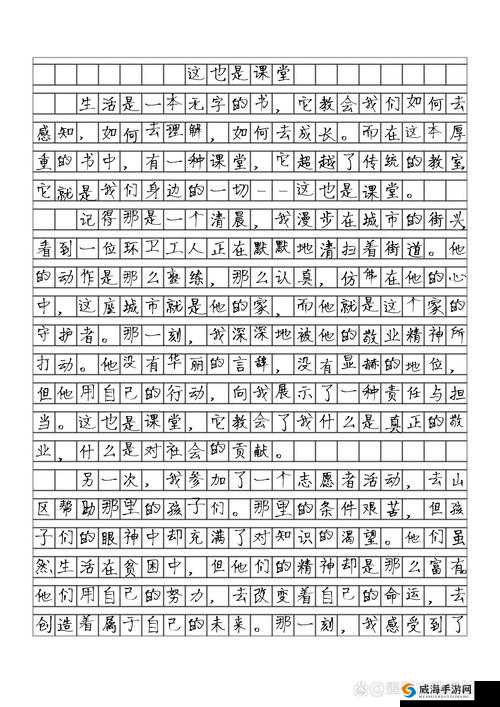 这也是课堂
生活是一本无字的书，它教会我们如何去
感知，如何去理解，如何去成长。而在这本厚
重的书中，有一种课堂，它超越了传统的教室
它就是我们身边的一切--这也是课堂。
记得那是一个清晨，我漫步在城市的街头
看到一位环卫工人正在默默地清扫着街道。他
的动作是那么熟练，那么认真，仿佛在他的心
中，这座城市就是他的家，而他就是这个家的
守护者。那一刻，我深深地被他的敬业精神所
打动。他没有华丽的言辞，没有显赫的地位，
但他用自己的行动，向我展示了一种责任与担
当。这也是课堂，它教会了我什么是真正的敬
业，什么是对社会的贡献。
另一次，我参加了一个志愿者活动，去山
区帮助那里的孩子们。那里的条件艰苦，但孩
子们的眼神中却充满了对知识的渴望。他们虽
然生活在贫困中，但他们的精神却是那么富有
他们用自己的努力，去改变着自己的命运，去
创造着属于自己的未来。那一刻，我感受到了
威海手游网